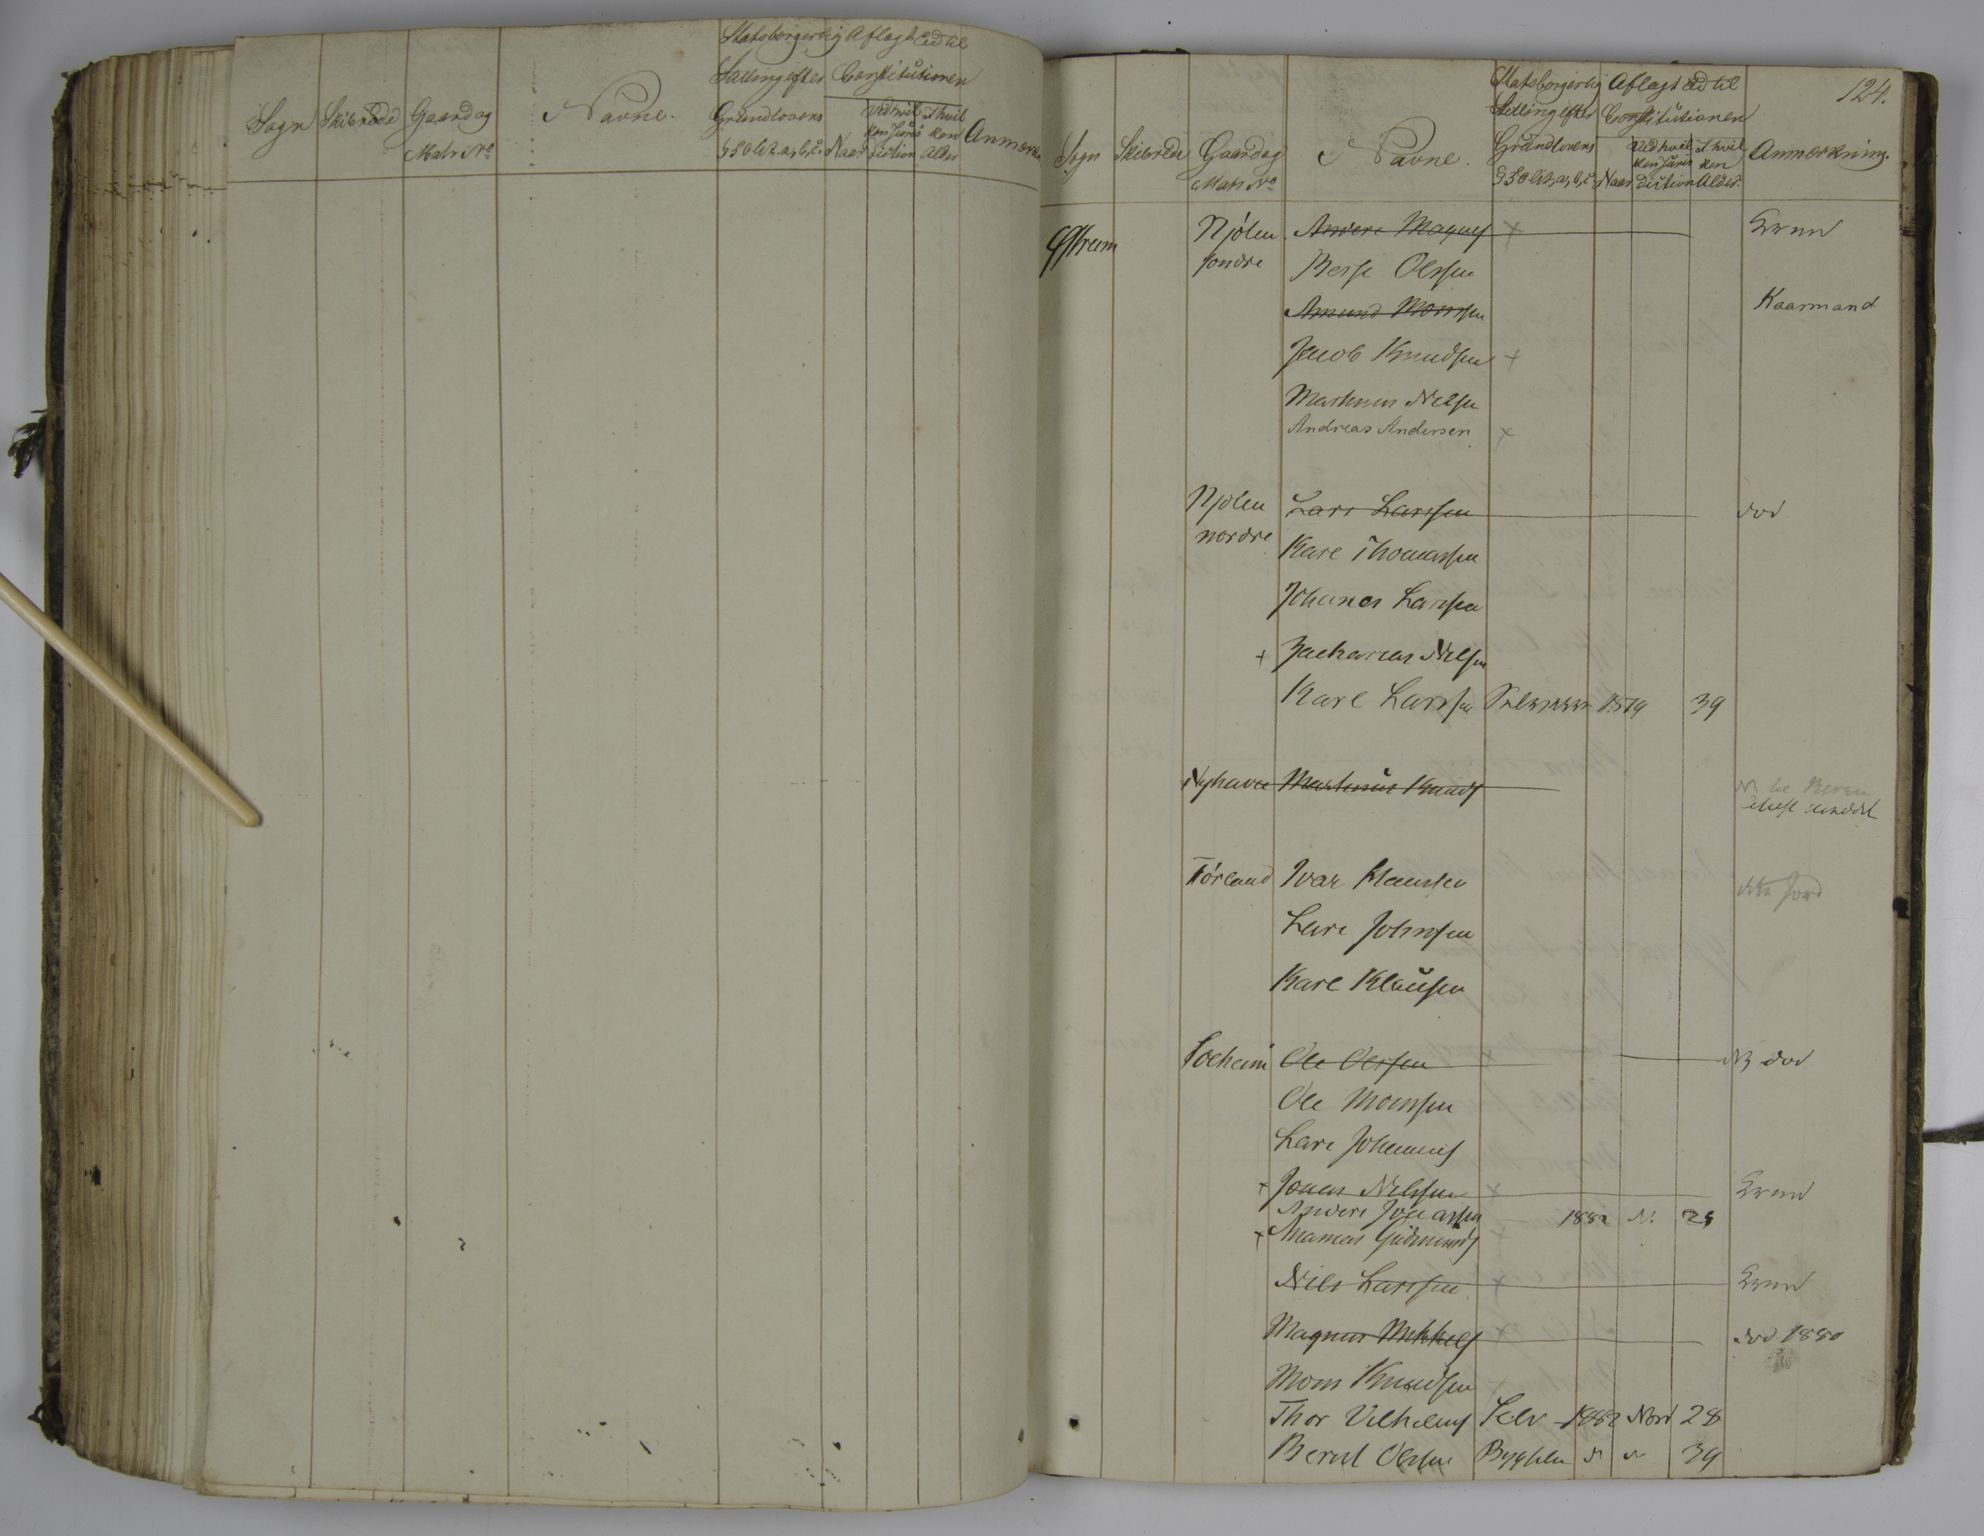 Sogn Skibrede Gaard og Matr. No Navne. Statsborgerlig Stilling efter Grundlovens § 50 litr. a, b, c. Aflagt Ed til Constitutionen Naar Ved hvilken Jurisdiction I hvilken Alder Anmærkn
124.
Sogn Skibrede Gaard og Matr. No Navne. Statsborgerlig Stilling efter Grundlovens § 50 litr. a, b, c. Aflagt Ed til Constitutionen Naar Ved hvilken Jurisdiction I hvilken Alder. Anmærkning.
Njølen Anders Magnus x
søndre Berje Olssen
Amund Monssen Kaarmand
Jacob Knudsen x
Martinus Nilsen
Andreas Andersen x
Njølen Lars Larssen død
nordre Karl Thomassen
Johanes Larssen
+ Zacharias Nilsen
Karl Larssen 1879 39
Nyhavn Martinus Knuds
Førland Ivar Hanssen
Lars Johnsen
Karl Klausen
Solheim Ole Olssen x død
Ole Monssen
Lars Johannes
+ Jonas Nilssen x
Anders Jonassen 1882 N. 28
+ Gudmunds x
Nils Larssen x
Magnus Mikkels x død 1880
Mons Knudsen
Thor Vilhelms Selv 1882 Nord 28
Bernt Olssen Bygslm 39